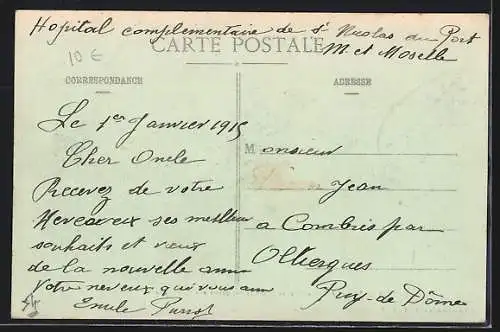 Hopital complementaire de St Nicolas du Port
M. et Moselle
CARTE POSTALE
10 €
CORRESPONDANCE
ADRESSE
Le 1er Janvier 1915
Cher Oncle
Recevez de votre
ses meilleur
souhaits et vœux
de la nouvelle anné
Votre neveux qui vous aim
Emile
Monsieur
Jean
a Combris par
Olliergues
Puy-de Dôme